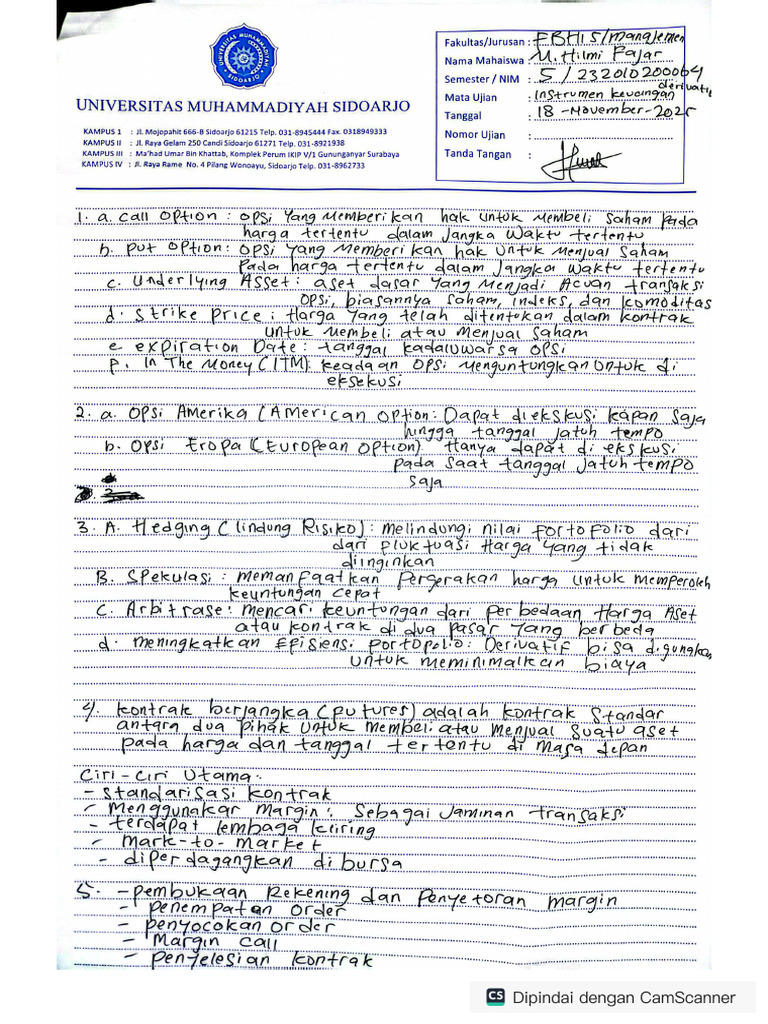 UNIVERSITAS MUHAMMADIYAH
SIDOARJO
UNIVERSITAS MUHAMMADIYAH SIDOARJO
KAMPUS 1 : Jl. Mojopahit 666-B Sidoarjo 61215 Telp. 031-8945444 Fax. 0318949333
KAMPUS II : Jl. Raya Gelam 250 Candi Sidoarjo 61271 Telp. 031-8921938
KAMPUS III : Ma'had Umar Bin Khattab, Komplek Perum IKIP V/1 Gununganyar Surabaya
KAMPUS IV : Jl. Raya Rame No. 4 Pilang Wonoayu, Sidoarjo Telp. 031-8962733
Fakultas/Jurusan : FBHIS/manajemen
Nama Mahaiswa : M. Hilmi Fajar
Semester / NIM : 5 / 232010200064
Mata Ujian : Instrumen keuangan derivatif
Tanggal : 18-November-2025
Nomor Ujian :
Tanda Tangan :
1. a. call option : opsi yang memberikan hak untuk membeli saham pada
harga tertentu dalam jangka waktu tertentu
b. put option: opsi yang memberikan hak untuk menjual saham
pada harga tertentu dalam jangka waktu tertentu
c. Underlying Asset: aset dasar yang menjadi acuan transaksi
opsi, biasannya saham, indeks, dan komoditas
d. strike price : Harga yang telah ditentokan dalam kontrak
untuk membeli atau menjual saham
e expiration Date: tanggal kadaluwarsa opsi
p. In The Money (ITM): keadaan opsi menguntungkan untuk di
eksekusi
2. a. opsi Amerika (American option: Dapat diekskusi kapan saja
hingga tanggal jatuh tempo
b. opsi Eropa (European option) Hanya dapat di ekskusi
pada saat tanggal jatuh tempo
saja
3. A. Hedging (lindung Risiko) : melindungi nilai fortofolio dari
dari fluktuasi Harga yang tidak
diinginkan
B. Spekulasi : memanfaatkan pergerakan harga untuk memperoleh
keuntungan cepat
C. Arbitrase: mencari keuntungan dari perbedaan Harga Aset
atau kontrak di dua pasar yang berbeda
d. meningkatkan Efisiensi portopolio: Derivatif bisa digunakan
untuk meminimalkan biaya
4. kontrak berjangka (putures) adalah kontrak standar
antara dua pihak untuk membeli atau menjual suatu aset
pada harga dan tanggal tertentu di masa depan
Ciri-ciri utama:
- standarisasi kontrak
- menggunakar margin: sebagai jaminan transaksi
- terdapat lembaga kliring
- mark-to-market
- diperdagangkan di bursa
5. - pembukaan Rekening dan penyetoran margin
- penempatan order
- penyocokan order
- Margin call
- penyelesian kontrak
CS Dipindai dengan CamScanner